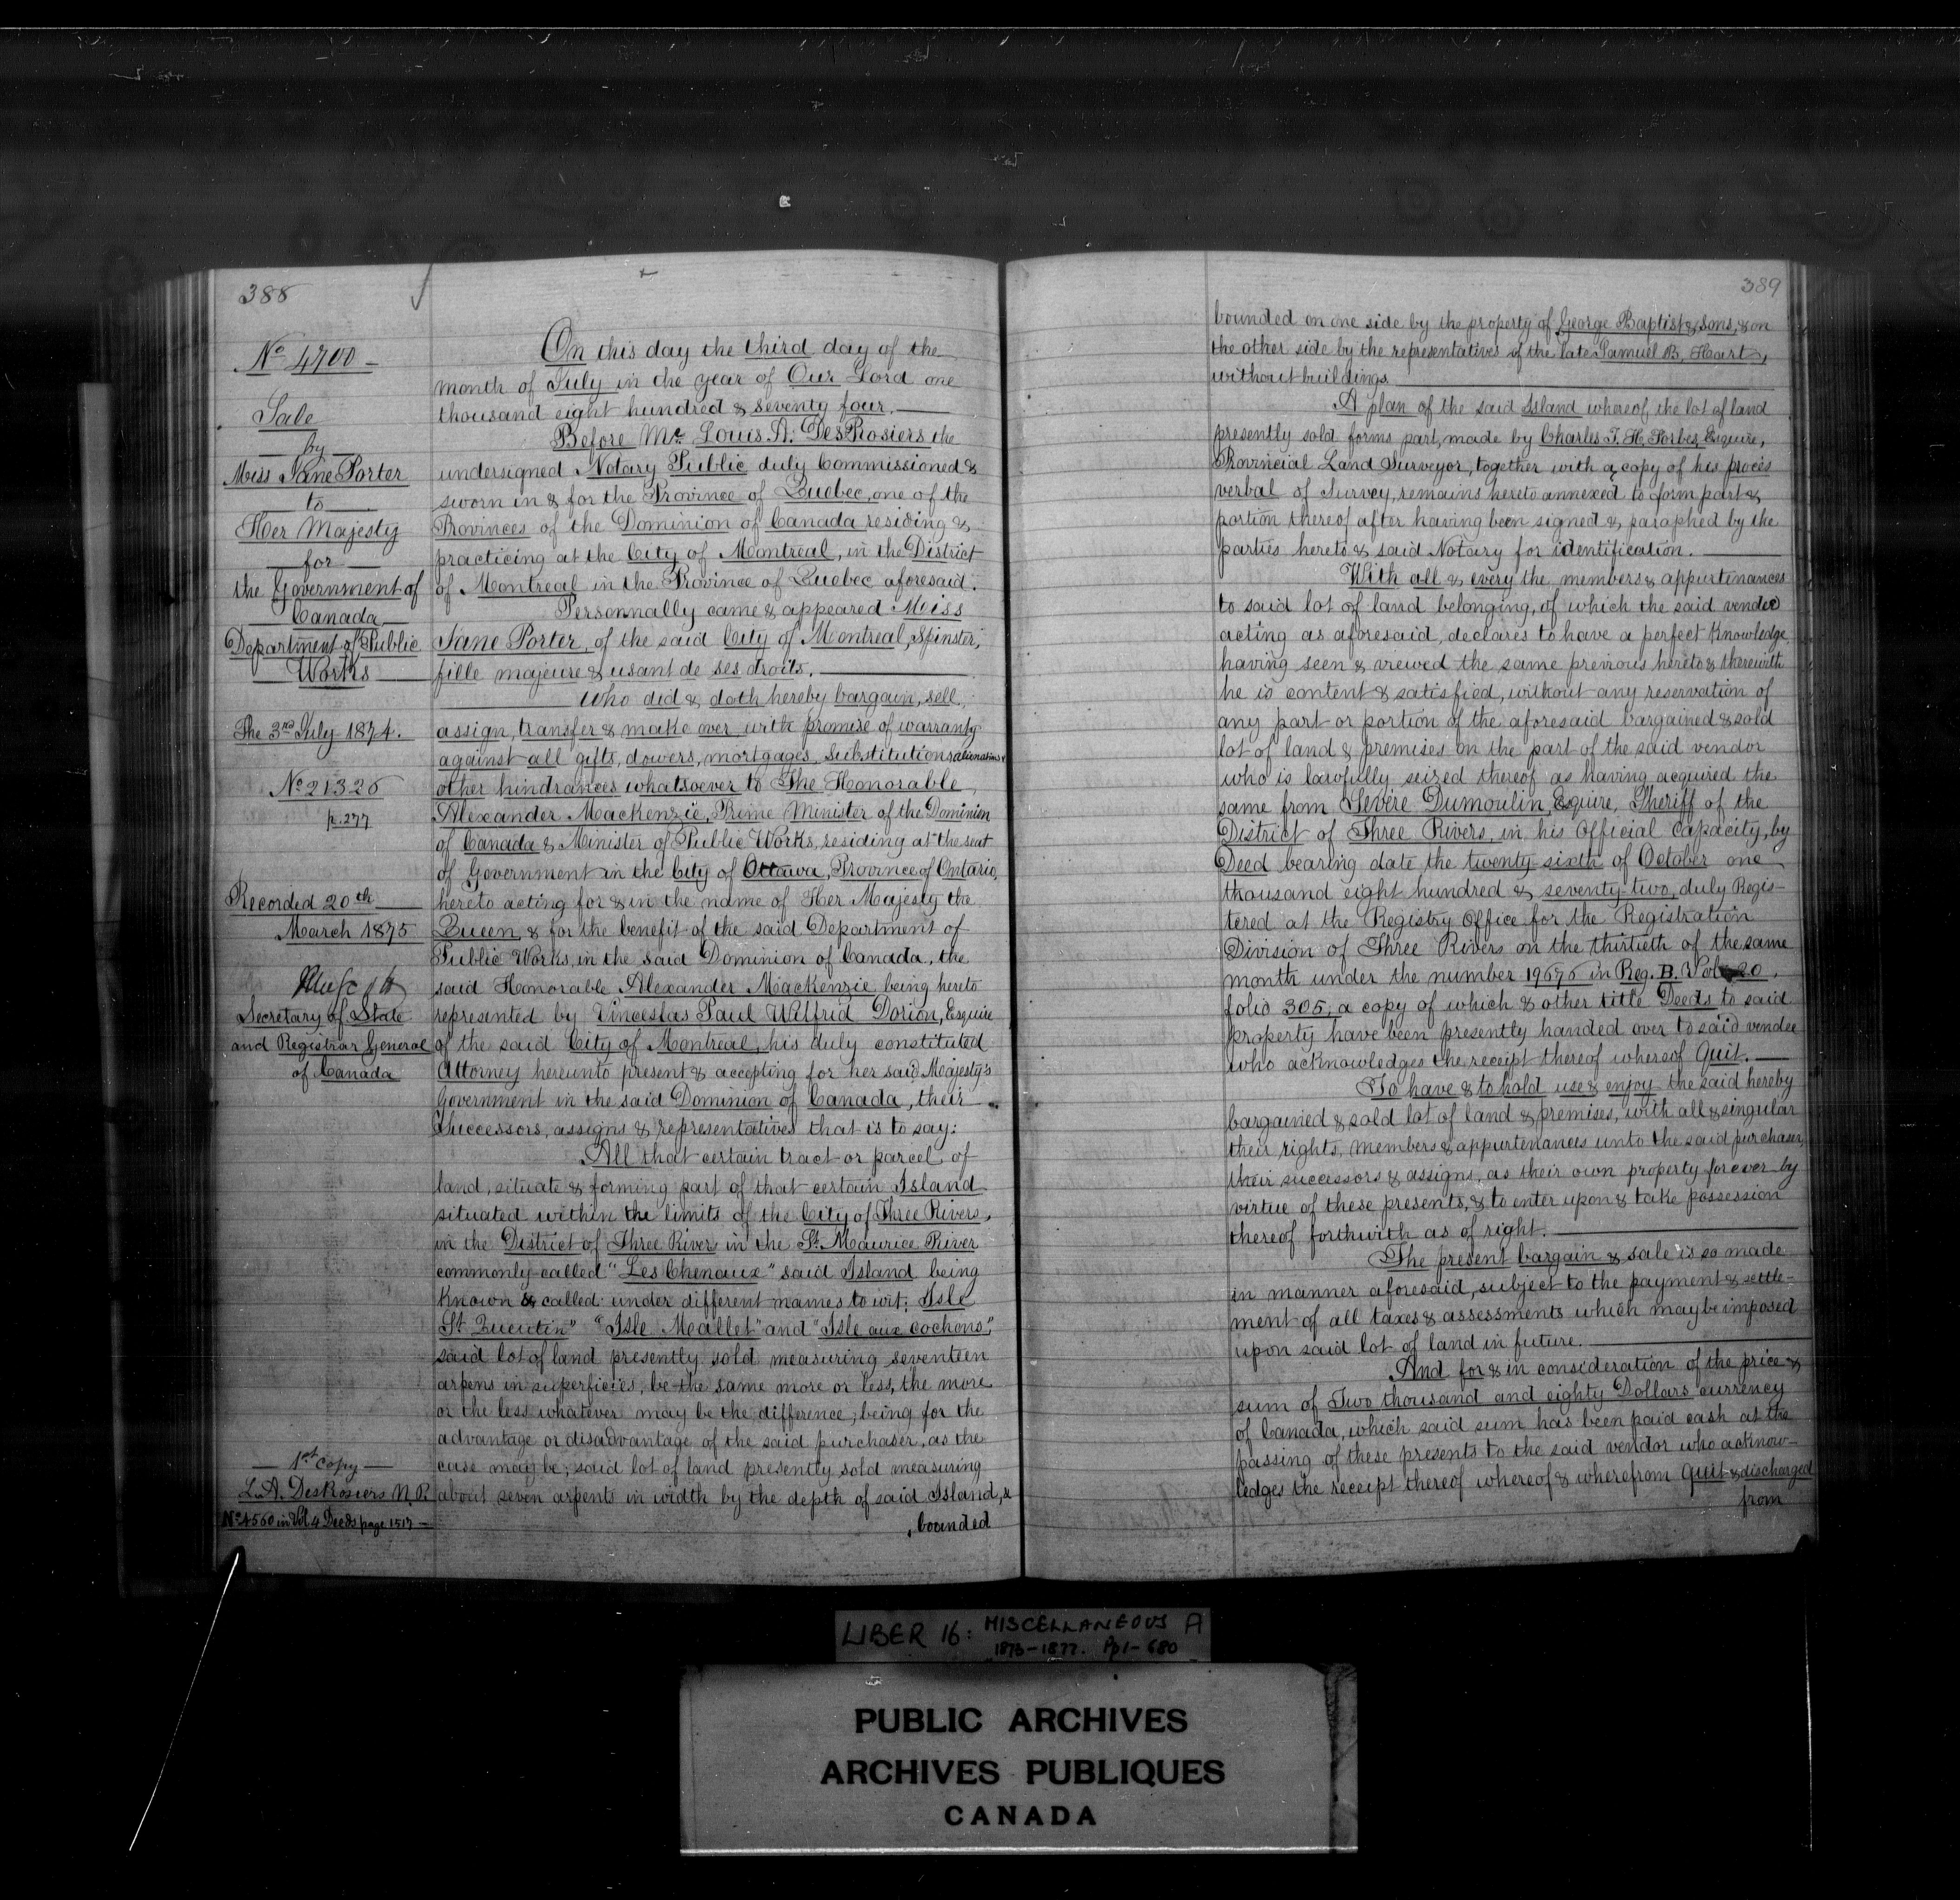 388
No 4700 -
Sale
by
Miss Jane Porter
to
Her Majesty
for
the Government of
Canada
Department of Public
Works
The 3rd July 1874.
No 21326
p. 277
Recorded 20th
March 1875
Secretary of State
and Registrar General
of Canada
1st Copy
L. A. DesRosiers N. P.
No 4560 in Vol 4 Deeds page 1517 -
On this day the third day of the
month of July in the year of Our Lord one
thousand eight hundred & seventy four.
Before Mr. Louis. A. DesRosiers the
undersigned Notary Public duly Commissioned &
sworn in & for the Province of Quebec, one of the
Provinces of the Dominion of Canada residing &
practicing at the City of Montreal, in the District
of Montreal in the Province of Quebec aforesaid.
Personnally came & appeared Miss
Jane Porter, of the said City of Montreal, Spinster,
fille majeure & usant de ses droits.
Who did & doth hereby bargain, sell,
assign, transfer & make over with promise of warranty
against all gifts, dowers, mortgages, Substitutions alienations &
other hindrances whatsoever to The Honorable
Alexander Mackenzie, Prime Minister of the Dominion
of Canada & Minister of Public Works, residing at the seat
of Government in the City of Ottawa, Province of Ontario,
hereto acting for & in the name of Her Majesty the
Queen, & for the benefit of the said Department of
Public Works, in the said Dominion of Canada, the
said Honorable Alexander Mackenzie being hereto
represented by Vinceslas Paul Wilfrid Dorion, Esquire
of the said City of Montreal, his duly constituted
Attorney hereunto present & accepting for her said Majesty's
Government in the said Dominion of Canada, their
Successors, assigns & representatives that is to say:
All that certain tract or parcel of
land, situate & forming part of that certain Island
situated within the limits of the City of Three Rivers,
in the District of Three River in the St. Maurice River
commonly called "Les Chenaux" said Island being
known & called under different names to wit; Isle
St Quentin" "Isle Mallet" and "Isle aux cochons,"
said lot of land presently sold measuring seventeen
arpens in superficies, be the same more or less, the more
or the less whatever may be the difference, being for the
advantage or disadvantage of the said purchaser, as the
case may be; said lot of land presently sold measuring
about seven arpents in width by the depth of said Island, &
bounded
389
bounded on one side by the property of George Baptist & Sons, & on
the other side by the representatives of the late Samuel B. Hart,
without buildings
A plan of the said Island whereof the lot of land
presently sold forms part, made by Charles T. H. Forbes, Esquire,
Provincial Land Surveyor, together with a copy of his procès
verbal of Survey, remains hereto annexed to form part &
portion thereof after having been signed & paraphed by the
parties hereto & said Notary for identification.
With all & every the members & appurtinances
to said lot of land belonging, of which the said vendee
acting as aforesaid, declares to have a perfect knowledge
having seen & viewed the same previous hereto & therewith
he is content & satisfied, without any reservation of
any part or portion of the aforesaid bargained & sold
lot of land & premises on the part of the said vendor
who is lawfully seized thereof as having acquired the
same from Sévère Dumoulin, Esquire, Sheriff of the
District of Three Rivers, in his Official Capacity, by
Deed bearing date the twenty sixth of October one
thousand eight hundred & seventy-two, duly Regis-
tered at the Registry Office for the Registration
Division of Three Rivers on the thirtieth of the same
month under the number 19676 in Reg. B. Vol 20,
folio 305, a copy of which & other title Deeds to said
property have been presently handed over to said vendee
who acknowledges the receipt thereof whereof Quit.
To have & to hold use & enjoy the said hereby
bargained & sold lot of land & premises, with all & singular
their rights, members & appurtenances unto the said purchaser,
their successors & assigns, as their own property forever by
virtue of these presents, & to enter upon & take possession
thereof forthwith as of right.
The present bargain & sale is so made
in manner aforesaid, subject to the payment & settle-
ment of all taxes & assessments which may be imposed
upon said lot of land in future.
And for & in consideration of the price &
sum of Two thousand and eighty Dollars currency
of Canada, which said sum has been paid cash at the
passing of these presents to the said vendor who acknow-
ledges the receipt thereof whereof & wherefrom quit & discharged
from
LIBER 16: MISCELLANEOUS A
1873-1877. Pp 1-680
PUBLIC ARCHIVES
ARCHIVES PUBLIQUES
CANADA